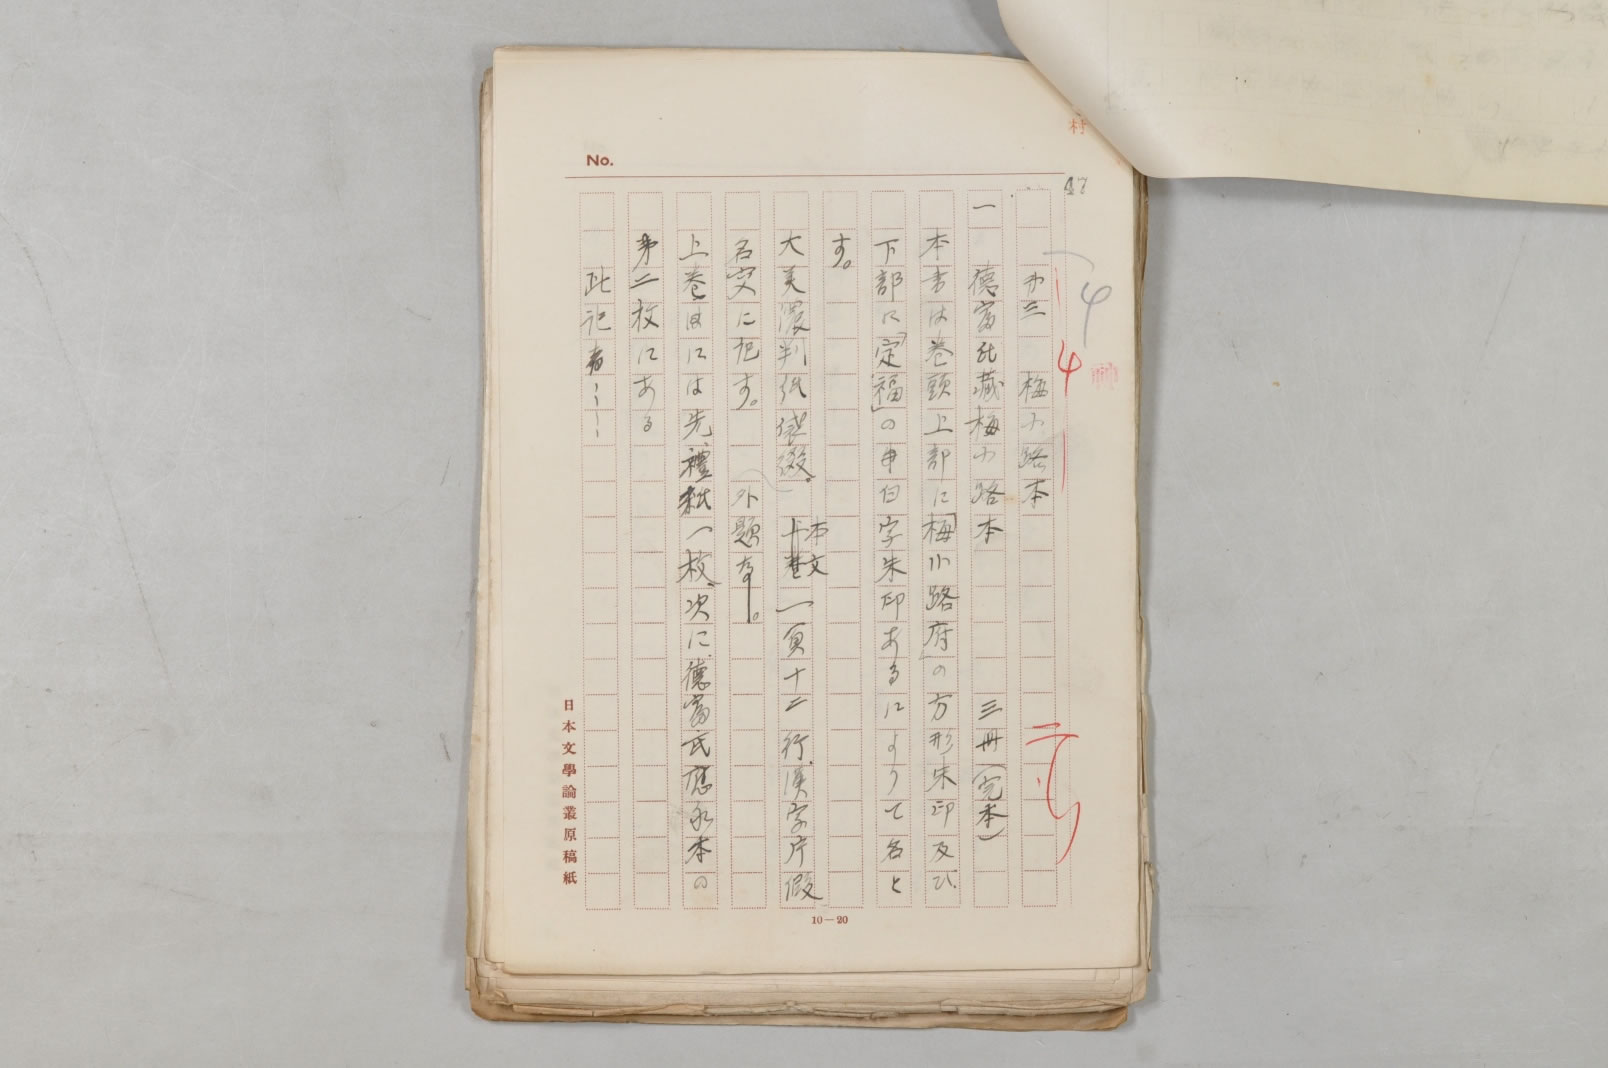 No.
47
才三 梅小路本
一 徳富氏蔵梅小路本 三冊(完本)
本書は巻頭上部に「梅小路府」の方形朱印及び
下部に「定福」の申白字朱印あるによりて名と
す。
大美濃判紙袋綴。本文一頁十二行、漢字片假
名交に記す。 外題なし。
上巻はには先、禮紙一枚、次に、徳富氏應永本の
第二枚にある
此記者
日本文學論叢原稿紙
10—20